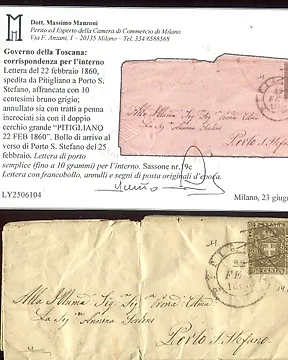 M
Dott. Massimo Manzoni
Perito ed Esperto della Camera di Commercio di Milano
Via F. Anzani, 1 - 20135 Milano - Tel. 334-6588568
Governo della Toscana:
corrispondenza per l'interno
Lettera del 22 febbraio 1860,
spedita da Pitigliano a Porto S.
Stefano, affrancata con 10
centesimi bruno grigio;
annullato sia con tratti a penna
incrociati sia con il doppio
cerchio grande "PITIGLIANO
22 FEB 1860". Bollo di arrivo al
verso di Porto S. Stefano del 25
febbraio. Lettera di porto
semplice (fino a 10 grammi) per l'interno. Sassone nr. 19c
Lettera con francobollo, annulli e segni di posta originali d'epoca.
LY2506104
Milano, 23 giug
Alla Illuma Sig
Porto S. Stefano.
22
FEB
Alla Illuma Sig
La Sig
Porto S. Stefano.